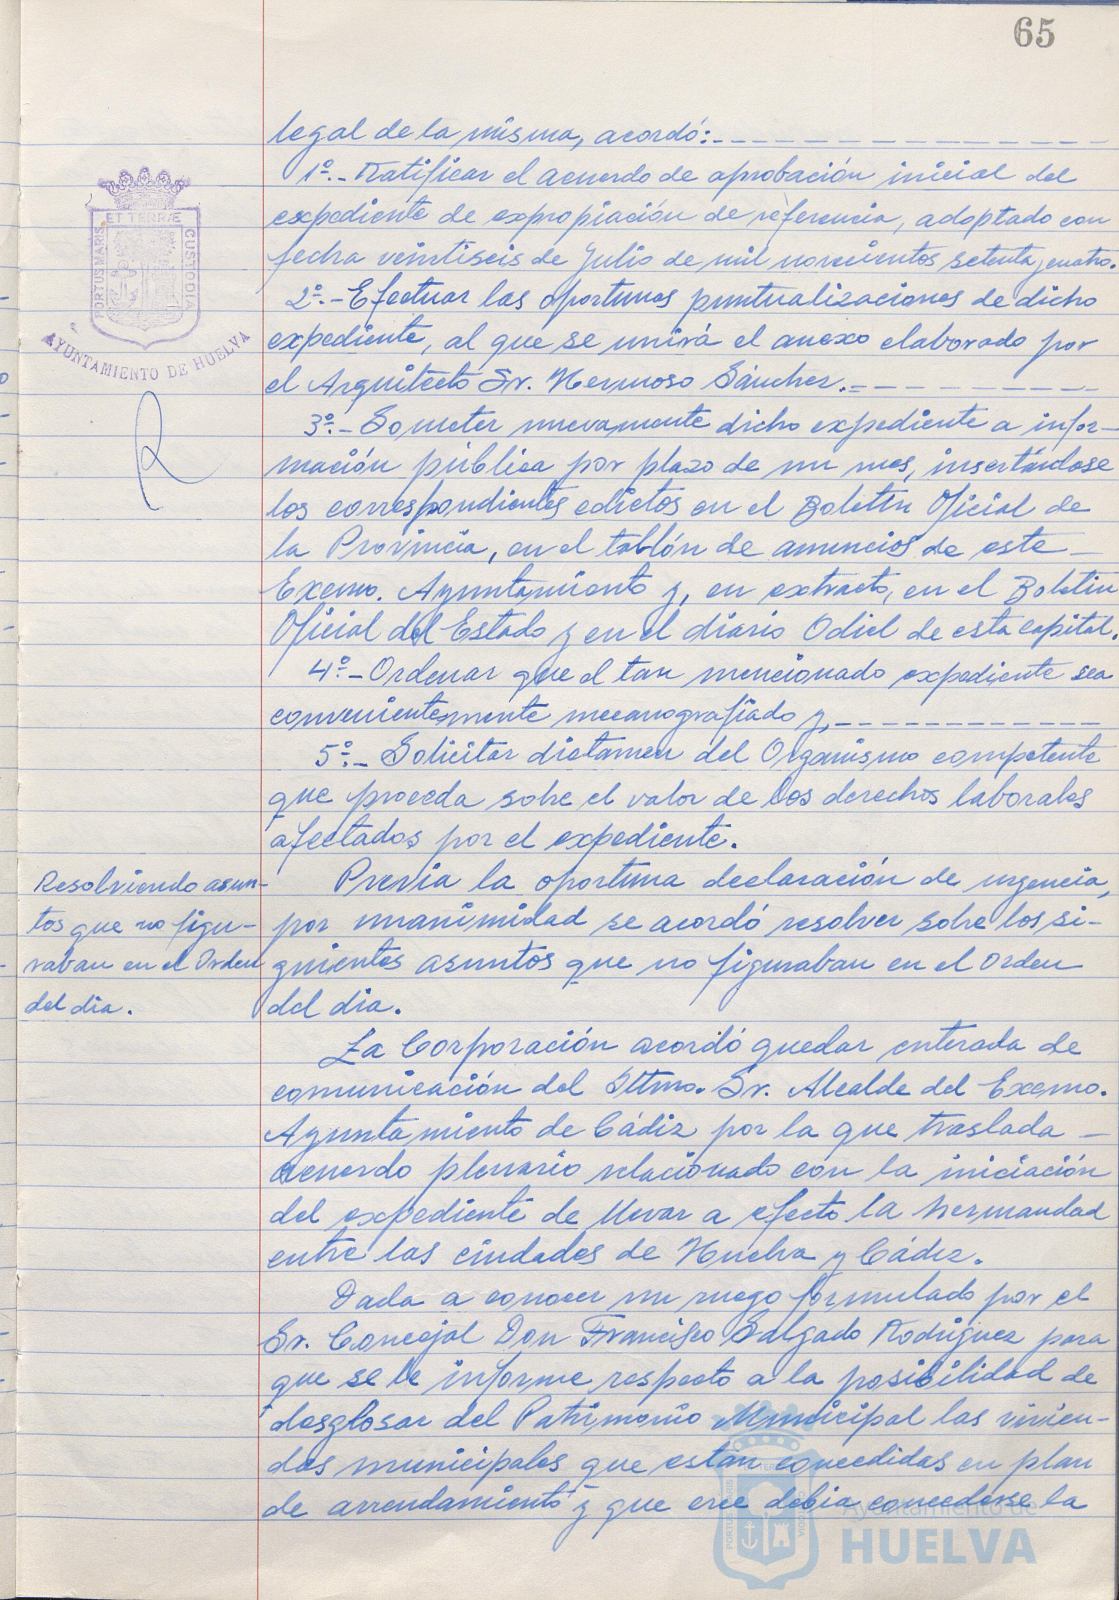 65
legal de la misma, acordó:
1º.- Ratificar el acuerdo de aprobación inicial del
expediente de expropiación de referencia, adoptado con
fecha veintiseis de Julio de mil novecientos setenta y cuatro.
2º.- Efectuar las oportunas puntualizaciones de dicho
expediente, al que se unirá el anexo elaborado por
el Arquitecto Sr. Hermoso Sánchez.-
3º.- Someter nuevamente dicho expediente a infor-
mación pública por plazo de un mes, insertándose
los correspondientes edictos en el Boletín Oficial de
la Provincia, en el tablón de anuncios de este
Excmo. Ayuntamiento y, en extracto, en el Boletin
Oficial del Estado y en el diario Odiel de esta capital.
4º.- Ordenar que el tan mencionado expediente sea
convenientemente mecanografiado y,
5º.- Solicitar dictamen del Organismo competente
que proceda sobre el valor de los derechos laborales
afectados por el expediente.
Resolviendo asun-
tos que no figu-
raban en el Orden
del dia.
Previa la oportuna declaración de urgencia,
por unanimidad se acordó resolver sobre los si-
guientes asuntos que no figuraban en el Orden
del dia.
La Corporación acordó quedar enterada de
comunicación del Iltmo. Sr. Alcalde del Excmo.
Ayuntamiento de Cádiz por la que traslada
acuerdo plenario relacionado con la iniciación
del expediente de llevar a efecto la hermandad
entre las ciudades de Huelva y Cádiz.
Dada a conocer un ruego formulado por el
Sr. Concejal Don Francisco Salgado Rodríguez para
que se le informe respecto a la posibilidad de
desglosar del Patrimonio Municipal las vivien-
das municipales que estan concedidas en plan
de arrendamiento y que cree debia concederse la
PORTUS MARIS
ET TERRÆ
CUSTODIA
AYUNTAMIENTO DE HUELVA
Ayuntamiento de
HUELVA